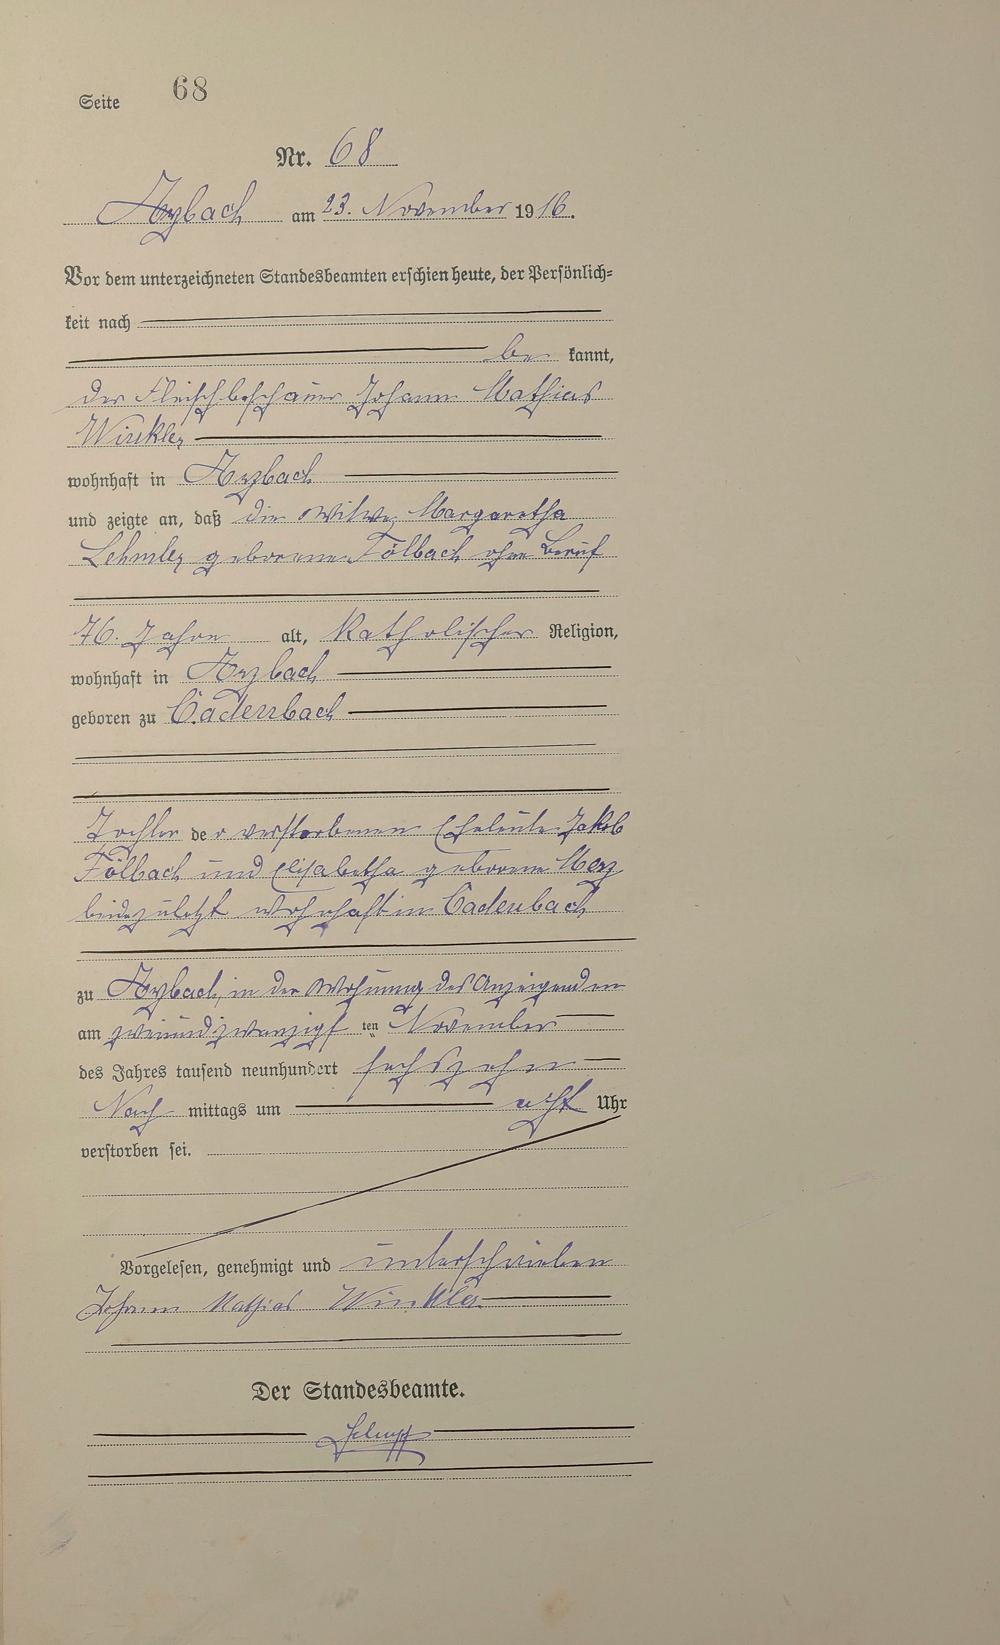 Seite 68
Nr. 68
Arzbach am 23. November 1916.
Vor dem unterzeichneten Standesbeamten erschien heute, der Persönlich=
keit nach
be kannt,
der Fleischbeschauer Johann Mathias
Winkler
wohnhaft in Arzbach
und zeigte an, daß die Witwe Margaretha
Lehmler geborene Fölbach ohne Beruf
76. Jahre alt, katholischer Religion,
wohnhaft in Arzbach
geboren zu Cadenbach
Tochter der verstorbenen Eheleute Jakob
Fölbach und Elisabetha geborene Merz
beide zuletzt wohnhaft in Cadenbach
zu Arzbach, in der Wohnung des Anzeigenden
am zweiundzwanzigsten November
des Jahres tausend neunhundert sechszehn
Nach mittags um acht Uhr
verstorben sei.
Vorgelesen, genehmigt und unterschrieben
Johann Mathias Winkler
Der Standesbeamte.